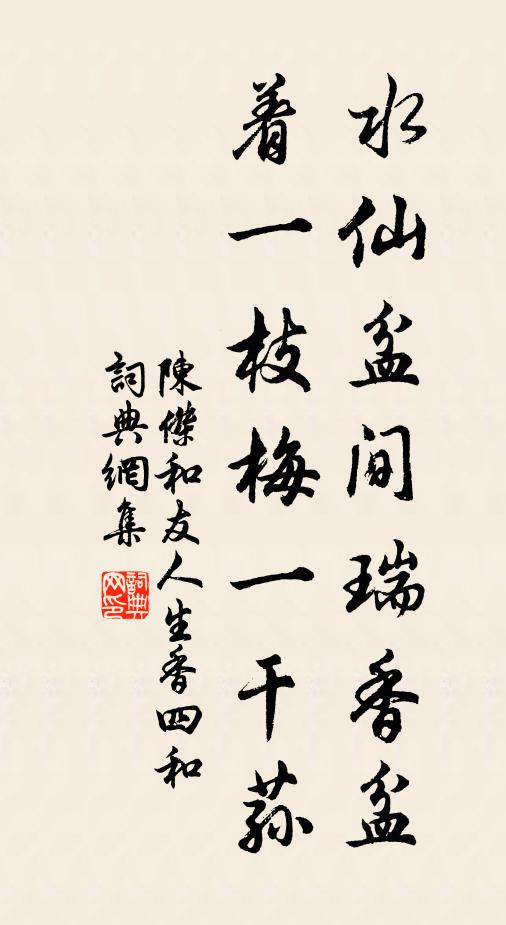 水仙盆间瑞香盆
着一枝梅一干荪
陳傑和友人生香四和
詞典網集
詞典网印